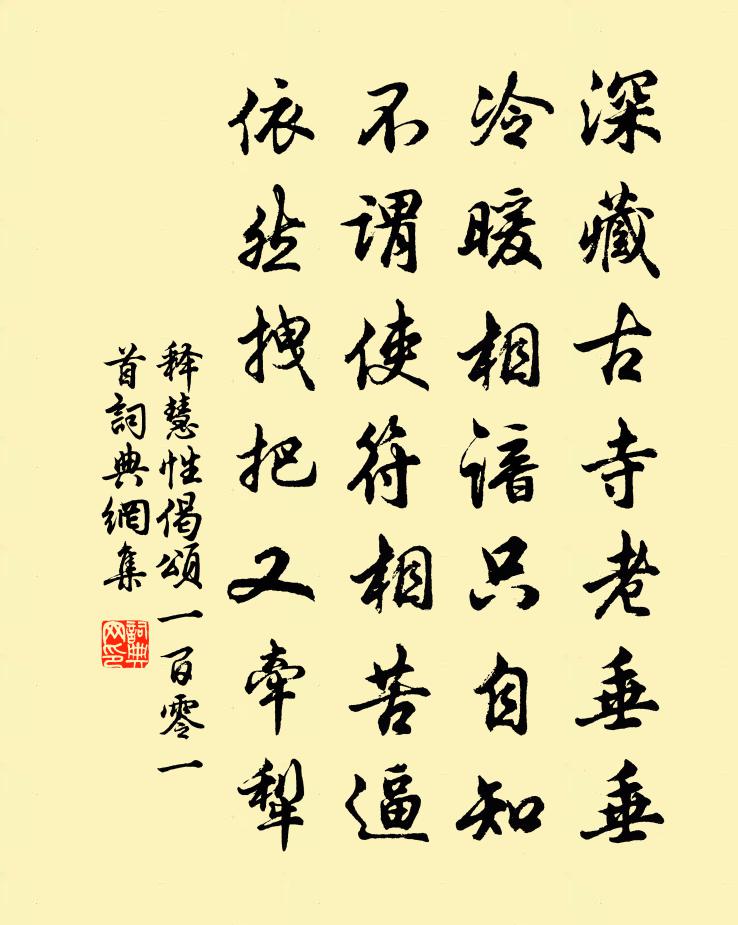 深藏古寺老垂垂
冷暖相谙只自知
不謂使符相苦逼
依然拽把又牽犁
释慧性偈頌一百零一
首詞典網集
詞典
网印